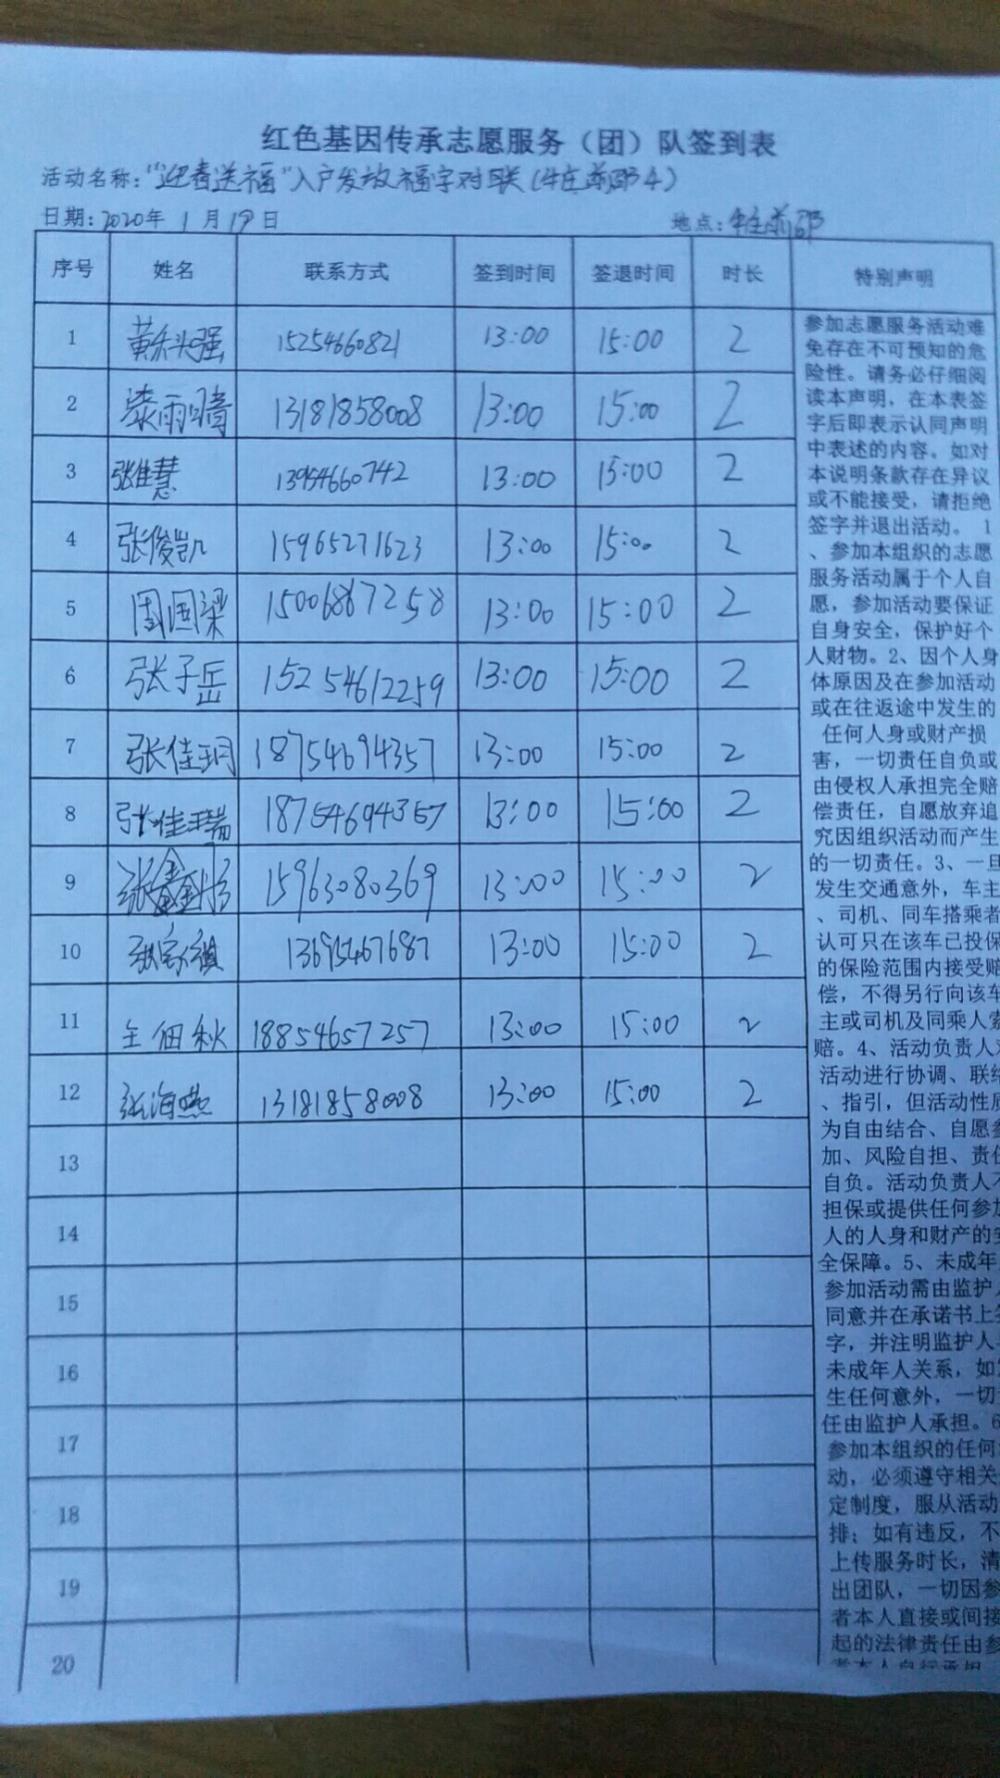 红色基因传承志愿服务（团）队签到表
活动名称：“迎春送福”入户发放福字对联（牛庄前邵4）
日期：2020年 1 月 19 日 地点：牛庄前邵
序号 姓名 联系方式 签到时间 签退时间 时长 特别声明
1 15254660821 13:00 15:00 2
2 漆雨晴 13181858008 13:00 15:00 2
3 张佳慧 13954660742 13:00 15:00 2
4 张俊凯 15965271623 13:00 15:00 2
5 周国梁 15006867258 13:00 15:00 2
6 张子岳 15254612259 13:00 15:00 2
7 张佳玥 18754694357 13:00 15:00 2
8 张佳瑞 18754694357 13:00 15:00 2
9 张鑫彤 15963080369 13:00 15:00 2
10 张家祺 13695467687 13:00 15:00 2
11 王佃秋 18854657257 13:00 15:00 2
12 张海燕 13181858008 13:00 15:00 2
13
14
15
16
17
18
19
20
参加志愿服务活动难
免存在不可预知的危
险性。请务必仔细阅
读本声明，在本表签
字后即表示认同声明
中表述的内容。如对
本说明条款存在异议
或不能接受，请拒绝
签字并退出活动。 1
、参加本组织的志愿
服务活动属于个人自
愿，参加活动要保证
自身安全，保护好个
人财物。2、因个人身
体原因及在参加活动
或在往返途中发生的
任何人身或财产损
害，一切责任自负或
由侵权人承担完全赔
偿责任，自愿放弃追
究因组织活动而产生
的一切责任。3、一旦
发生交通意外，车主
、司机、同车搭乘者
认可只在该车已投保
的保险范围内接受赔
偿，不得另行向该车
主或司机及同乘人索
赔。4、活动负责人对
活动进行协调、联络
、指引，但活动性质
为自由结合、自愿参
加、风险自担、责任
自负。活动负责人不
担保或提供任何参加
人的人身和财产的安
全保障。5、未成年
参加活动需由监护人
同意并在承诺书上签
字，并注明监护人
未成年人关系，如
生任何意外，一切
任由监护人承担。6
参加本组织的任何
动，必须遵守相关
定制度，服从活动
排；如有违反，不
上传服务时长，清
出团队，一切因参
者本人直接或间接
起的法律责任由参
者本人自行承担